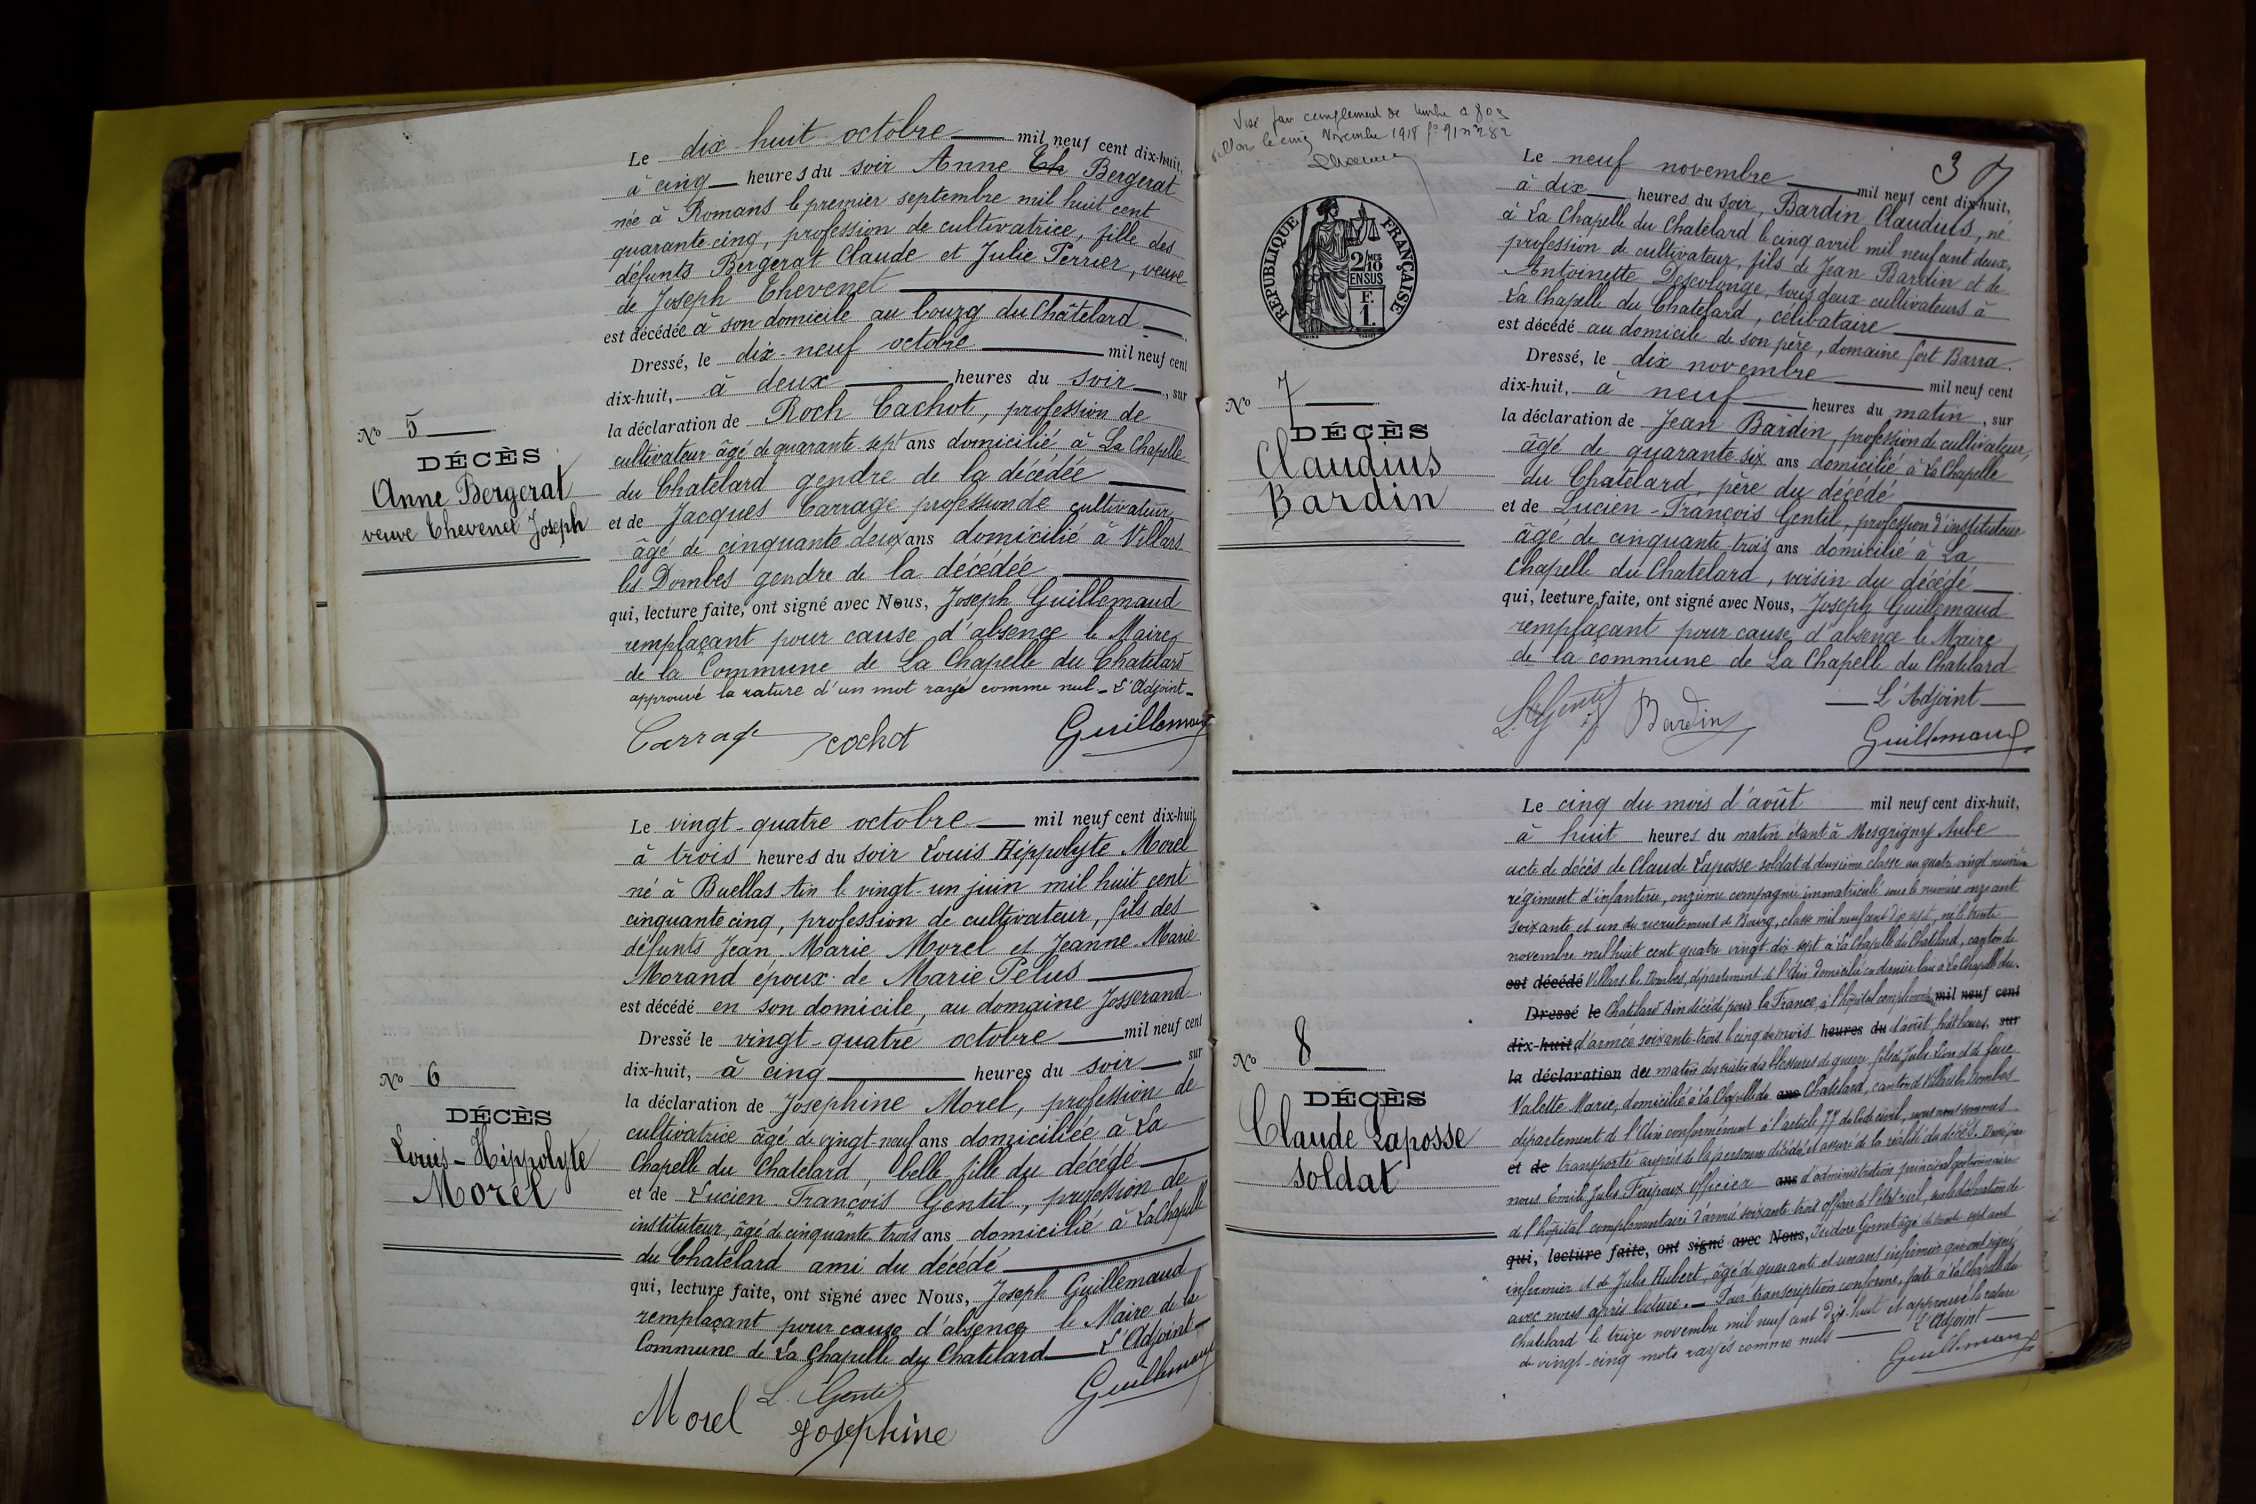 Le dix-huit octobre mil neuf cent dix-huit,
à cinq heures du soir Anne Ch Bergerat
née à Romans le premier septembre mil huit cent
quarante cinq, profession de cultivatrice, fille des
défunts Bergerat Claude et Julie Perrier, veuve
de Joseph Chevenet
est décédée à son domicile au bourg du Châtelard
Dressé, le dix-neuf octobre mil neuf cent
dix-huit, à deux heures du soir, sur
la déclaration de Roch Cachot, profession de
cultivateur âgé de quarante sept ans domicilié à La Chapelle
du Chatelard gendre de la décédée
et de Jacques Carrage profession de cultivateur
âgé de cinquante deux ans domicilié à Villars
les Dombes gendre de la décédée
qui, lecture faite, ont signé avec Nous, Joseph Guillemaud
remplaçant pour cause d'absence le Maire
de la Commune de La Chapelle du Chatelard
approuvé la rature d'un mot rayé comme nul - L'Adjoint -
Carrage cochot Guillemaud
No 5
DÉCÈS
Anne Bergerat
veuve Chevenet Joseph
Le vingt-quatre octobre mil neuf cent dix-huit,
à trois heures du soir Louis Hippolyte Morel
né à Buellas Ain le vingt-un juin mil huit cent
cinquante cinq, profession de cultivateur, fils des
défunts Jean-Marie Morel et Jeanne-Marie
Morand époux de Marie Pelus
est décédé en son domicile, au domaine Josserand
Dressé le vingt-quatre octobre mil neuf cent
dix-huit, à cinq heures du soir sur
la déclaration de Josephine Morel, profession de
cultivatrice âgé de vingt-neuf ans domiciliée à La
Chapelle du Chatelard, belle fille du décédé
et de Lucien-François Gentil, profession de
instituteur, âgé de cinquante trois ans domicilié à La Chapelle
du Chatelard ami du décédé
qui, lecture faite, ont signé avec Nous, Joseph Guillemaud
remplaçant pour cause d'absence le Maire de la
Commune de La Chapelle du Chatelard L'Adjoint
Morel L. Gentil Guillemaud
Josephine
No 6
DÉCÈS
Louis-Hippolyte
Morel
Visé pour complément de timbre à 80
Villars le cinq Novembre 1918 fo 91 no 282
RÉPUBLIQUE FRANÇAISE
2/10 MES
EN SUS
F.
1.
No 7
DÉCÈS
Claudius
Bardin
37
Le neuf novembre mil neuf cent dix-huit,
à dix heures du soir, Bardin Claudius, né
à La Chapelle du Chatelard le cinq avril mil neuf cent deux,
profession de cultivateur, fils de Jean Bardin et de
Antoinette Descolonge, tous deux cultivateurs à
La Chapelle du Chatelard, célibataire
est décédé au domicile de son père, domaine fort Barra.
Dressé, le dix novembre mil neuf cent
dix-huit, à neuf heures du matin, sur
la déclaration de Jean Bardin, profession de cultivateur,
âgé de quarante six ans domicilié à La Chapelle
du Chatelard, père du décédé
et de Lucien-François Gentil, profession d'instituteur
âgé de cinquante trois ans domicilié à La
Chapelle du Chatelard, voisin du décédé
qui, lecture faite, ont signé avec Nous, Joseph Guillemaud
remplaçant pour cause d'absence le Maire
de la commune de La Chapelle du Chatelard
L'Adjoint
L. Gentil Bardin Guillemaud
No 8
DÉCÈS
Claude Laposse
soldat
Le cinq du mois d'août mil neuf cent dix-huit,
à huit heures du matin étant à Mesgrigny Aube
acte de décès de Claude Laposse soldat de deuxième classe au quatre vingt neuvième
régiment d'infanterie, onzième compagnie immatriculé sous le numéro onze cent
soixante et un du recrutement de Bourg, classe mil neuf cent dix sept, né le trente
novembre mil huit cent quatre vingt dix-sept à La Chapelle du Chatelard, canton de
est décédé Villars les Dombes, département de l'Ain domicilié en dernier lieu à La Chapelle du
Dressé le Chatelard Ain décédé pour la France, à l'hôpital complémentaire mil neuf cent
dix-huit, d'armée soixante-trois le cinq du mois heures du d'août, huit heures, sur
la déclaration de du matin des suites des blessures de guerre fils de Jules Léon et de feue
Valette Marie, domicilié à La Chapelle du ans Chatelard, canton de Villars les Dombes
département de l'Ain conformément à l'article 77 du Code civil, nous nous sommes
et de transporté auprès de la personne décédée et assuré de la réalité du décès. Dressé par
nous Emile Jules officier ans d'administration principal gestionnaire
de l'hôpital complémentaire d'armée soixante trois officier de l'état civil, sur la déclaration de
qui, lecture faite, ont signé avec Nous, Isidore âgé de trente sept ans
infirmier et de Jules Hubert, âgé de quarante et un ans infirmier qui ont signé
avec nous après lecture. - Pour transcription conforme, faite à La Chapelle du
Chatelard le treize novembre mil neuf cent dix-huit et approuvé la rature
de vingt-cinq mots rayés comme nuls L'Adjoint
Guillemaud